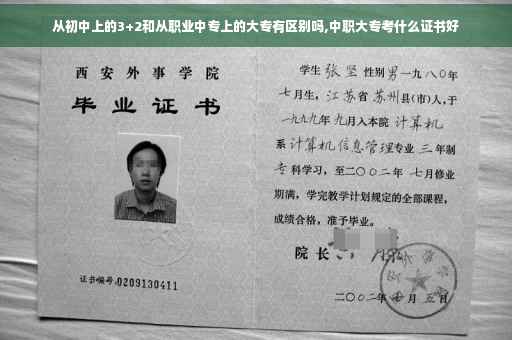 从初中上的3+2和从职业中专上的大专有区别吗,中职大专考什么证书好
西安外事学院
毕业证书
证书编号:0209130411
学生 张坚 性别 男 一九八〇年
七月生, 江苏省 苏州县(市)人,于
一九九九年 九月入本院 计算机
系 计算机信息管理专业 三 年制
专科学习, 至二〇〇二年 七月修业
期满, 学完教学计划规定的全部课程,
成绩合格, 准予毕业。
院长
二〇〇二年 月五日